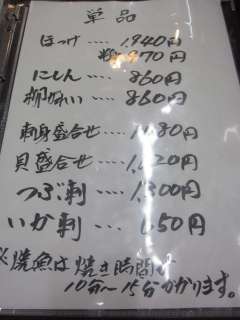 単品
ほっけ…. 1,940円
970円
にしん…. 860円
柳かれい…. 860円
刺身盛合せ…. 1,080円
貝盛合せ…. 1,620円
つぶ刺…. 1,300円
いか刺…. 650円
※焼魚は焼き時間が
10分〜15分かかります。